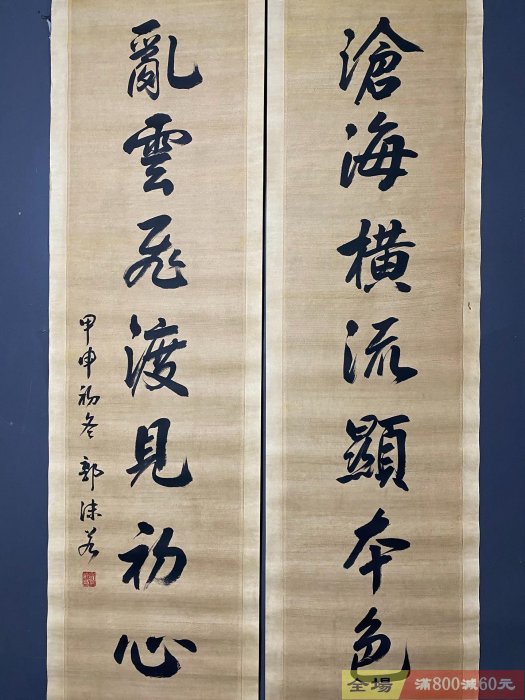 滄海橫流顯本色
亂雲飛渡見初心
甲申初冬 郭沫若
全場
滿800減60元